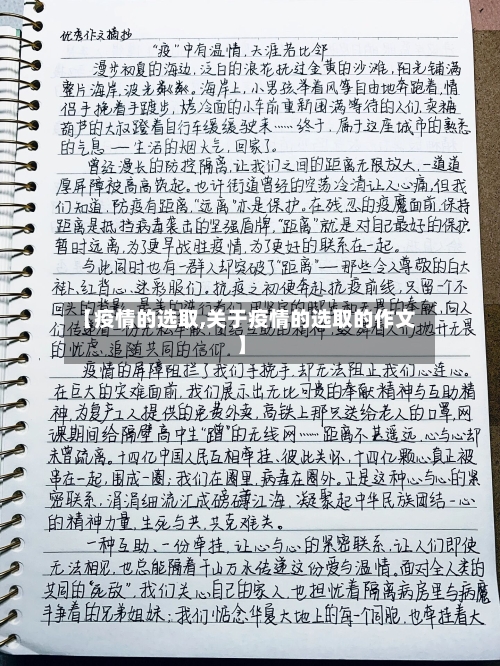 优秀作文摘抄
“疫”中有温情,天涯若比邻
漫步初夏的海边,泛白的浪花抚过金黄的沙滩,阳光铺满
整片海岸,波光粼粼。海岸上,小男孩举着风筝自由地奔跑着,情
侣手挽着手踱步,烤冷面的小车前重新围满等待的人们,卖糖
葫芦的大叔蹬着自行车缓缓驶来……终于,属于这座城市的熟悉
的气息——生活的烟火气,回家了。
曾经漫长的防控隔离,让我们之间的距离无限放大,一道道
厚屏障被高高筑起。也许街道曾经的空荡冷清让人心痛,但我
们知道,防疫有距离,“远离”亦是保护。在残忍的疫魔面前,保持
距离是抵挡病毒袭击的坚强盾牌,“距离”就是对自己最好的保护,
暂时远离,为了更早战胜疫情,为了更好的联系在一起。
与此同时也有一群人却突破了“距离”——那些令人尊敬的白大
褂、红背心、迷彩服们。抗疫之初便奔赴抗疫前线,只留一个不
【疫情的选取,关于疫情的选取的作文
】
的忧虑,追随共同的信仰。
疫情的屏障阻拦了我们手挽手,却无法阻止我们心连心。
在巨大的灾难面前,我们展示出无比可贵的奉献精神与互助精
神,为复产工人提供的免费外卖,高铁上那只送给老人的口罩,网
课期间给隔壁高中生“蹭”的无线网……距离不甚遥远,心与心却
未曾疏离。十四亿中国人民互相牵挂、彼此关怀,十四亿颗心真正被
串在一起,围成一圈;我们在圈里,病毒在圈外。正是这种心与心的紧
密联系,涓涓细流汇成磅礴江海,凝聚起中华民族团结一心
的精神力量,生死与共,共克难关。
一种互助、一份牵挂,让心与心的紧密联系,让人们即使
无法相见,也总能隔着千山万水传递这份爱与温情,面对全人类的
共同的“死敌”,我们关心自己的家人,也担忧着隔离病房里与病魔
斗争着的兄弟姐妹;我们惦念华夏大地上的每一个同胞,也牵挂着大